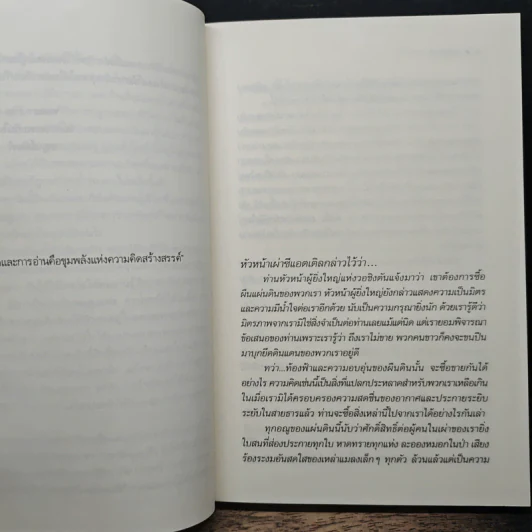 และการอ่านคือขุมพลังแห่งความคิดสร้างสรรค์"
หัวหน้าเผ่าซีแอตเติลกล่าวไว้ว่า...
ท่านหัวหน้าผู้ยิ่งใหญ่แห่งวอชิงตันแจ้งมาว่า เขาต้องการซื้อ
ผืนแผ่นดินของพวกเรา หัวหน้าผู้ยิ่งใหญ่ยังกล่าวแสดงความเป็นมิตร
และความมีน้ำใจต่อเราอีกด้วย นับเป็นความกรุณายิ่งนัก ด้วยเรารู้ดีว่า
มิตรภาพจากเรามิใช่สิ่งจำเป็นต่อท่านเลยแม้แต่นิด แต่เรายอมพิจารณา
ข้อเสนอของท่านเพราะเรารู้ว่า ถึงเราไม่ขาย พวกคนขาวก็คงจะขนปืน
มาบุกยึดดินแดนของพวกเราอยู่ดี
ทว่า...ท้องฟ้าและความอบอุ่นของผืนดินนั้น จะซื้อขายกันได้
อย่างไร ความคิดเช่นนี้เป็นสิ่งที่แปลกประหลาดสำหรับพวกเราเหลือเกิน
ในเมื่อเรามิได้ครอบครองความสดชื่นของอากาศและประกายระยิบ
ระยับในสายธารแล้ว ท่านจะซื้อสิ่งเหล่านี้ไปจากเราได้อย่างไรกันเล่า
ทุกอณูของแผ่นดินนี้นับว่าศักดิ์สิทธิ์ต่อผู้คนในเผ่าของเรายิ่ง
ใบสนที่ส่องประกายทุกใบ หาดทรายทุกแห่ง ละอองหมอกในป่า เสียง
ร้องระงมอันสดใสของเหล่าแมลงเล็ก ๆ ทุกตัว ล้วนแล้วแต่เป็นความ